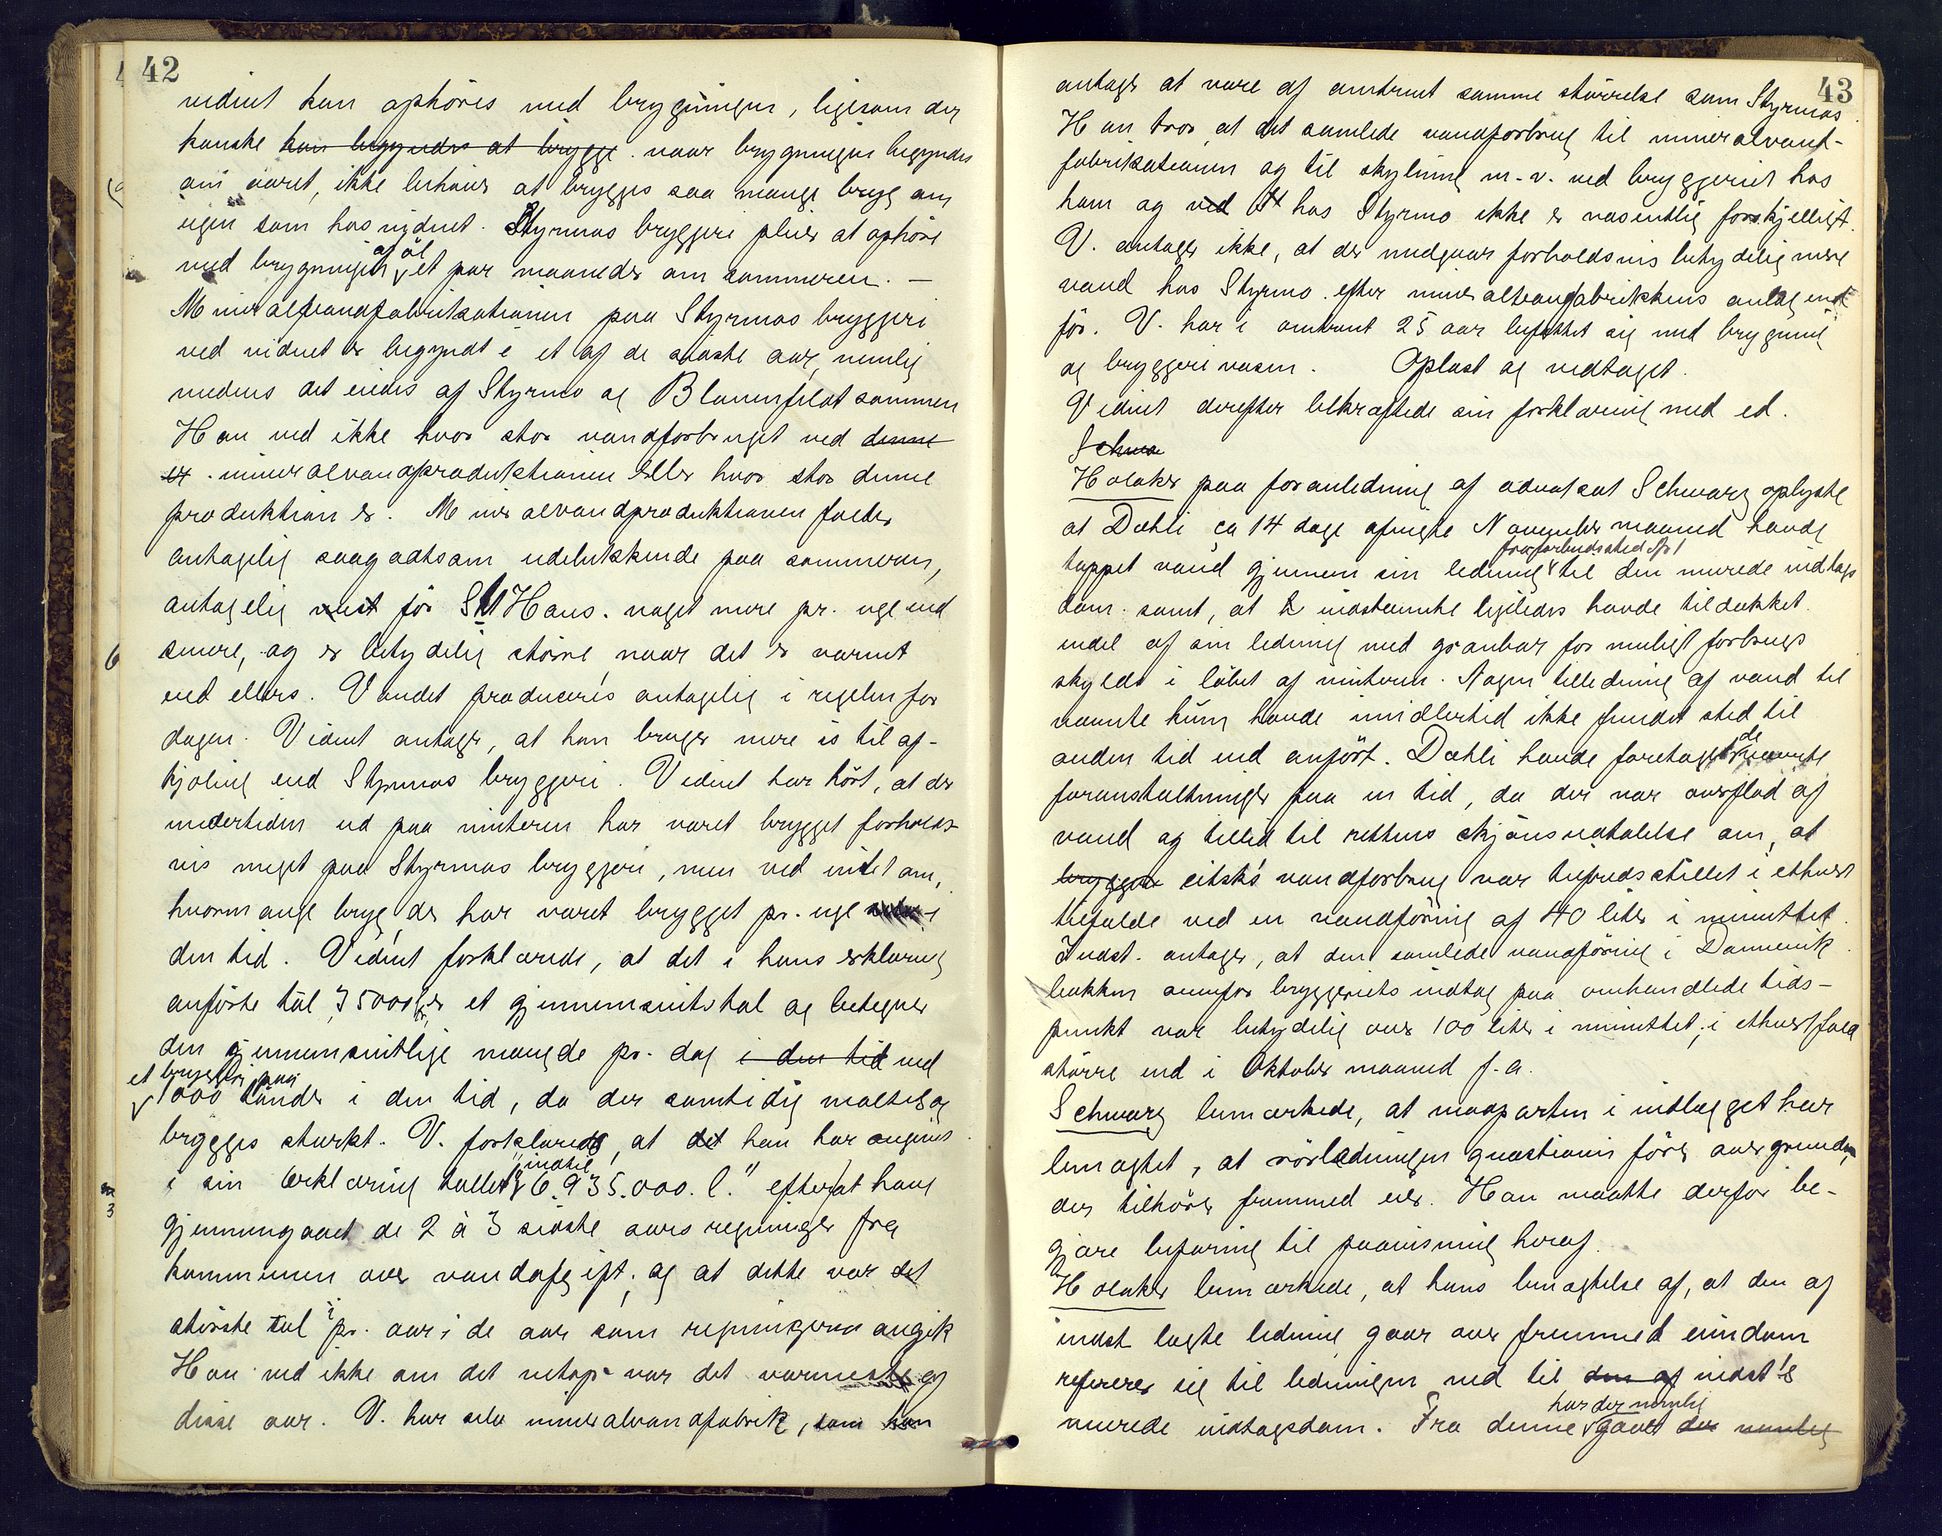 42
vidnet kan ophöres med brygningen, ligesom der
kanske kan begyndes at brygge. naar brygningen begyndes
om aaret, ikke behöver at brygges saa mange bryg om
ugen som hos vidnet. Styrmos bryggeri pleier at ophöre
af öl
med brygningen et par maaneder om sommeren. —
Mineralvandfabrikationen paa Styrmos bryggeri
ved vidnet er begyndt i et af de sidste aar, nemlig
medens det eiedes af Styrmo og Blomfeldt sammen
Han ved ikke hvor stor vandforbruget ved denne
14. mineralvandproduktionen eller hvor stor denne
produktion er. Mineralvandproduktionen falder
antagelig saagodtsom udelukkende paa sommeren,
antagelig mest för St Hans. noget mere pr. uge end
6
senere, og er betydelig större naar det er varmt
end ellers. Vandet produceres antagelig i regelen for
dagen. Vidnet antager, at han bruger mere is til af-
kjöling end Styrmos bryggeri. Vidnet har hört, at der
undertiden ud paa vinteren har været brygget forholds-
vis meget paa Styrmos bryggeri, men ved intet om,
hvormange bryg der har været brygget pr. uge i
den tid. Vidnet forklarede, at det i hans erklæring
anförte tal, 35000 er et gjennemsnitstal og betegner
den gjennemsnitlige mængde pr. dag i den tid ved
et bryggeri paa
1000 tönder i den tid, da der samtidig maltes og
brygges sterkt. V. forklarede, at det han har angivet
indtil
i sin erklæring tallet "6.935.000. l." efter at have
3
gjennemgaaet de 2 à 3 sidste aars regninger fra
kommunen over vandafgift, og at dette var det
störste tal i pr. aar i de aar som regningerne angik
Han ved ikke om det netop var det varmeste af
disse aar. V. har selv mineralvandfabrik, som han
43
antages at være af omtrent samme störrelse som Styrmos.
Han tror, at det samlede vandforbrug til mineralvand-
fabrikationen og til skylning m. v. ved bryggeriet hos
ham og ved hos Styrmo ikke er væsentlig forskjelligt.
V. antager ikke, at der medgaar forholdsvis betydelig mere
vand hos Styrmo efter mineralvandfabrikkens anlæg end
för. V. har i omtrent 25 aar befattet sig med brygning
og bryggerivæsen. Oplæst og vedtaget.
Vidnet derefter bekræftede sin forklaring med ed.
Schwa
Holaker paa foranledning af advokat Schwarz oplyste
at Dæhli ca 14 dage afvigte November maaned havde
fra forbudssted No 1
tappet vand gjennem sin ledning til den murede indtags
dam. samt, at indstevnte ligeledes havde tildækket
endel af sin ledning med granbar for muligt forbrugs
skyld i löbet af vinteren. Nogen tilledning af vand til
nævnte kum havde imidlertid ikke fundet sted til
de
anden tid end anfört. Dæhli havde foretaget nævnte
foranstaltninger paa en tid, da der var overflod af
vand og tillid til rettens skjönsudtalelse om, at
bryggeri citski's vandforbrug var tilfredsstillet i ethvert
tilfælde ved en vandföring af 40 liter i minuttet.
Indst. antager, at den samlede vandföring i Dannevik
bækken ovenfor bryggeriets indtag paa omhandlede tids-
punkt var betydelig over 100 liter i minuttet, i ethvert fald
större end i Oktober maaned f. a.
Schwarz bemærkede, at modparten i indlægget har
benegtet, at rörledningen quæstionis förer over grund,
der tilhörer fremmed eier. Han maatte derfor be-
gjære befaring til paavisning heraf.
Holaker bemærkede, at hans benegtelse af, at den af
indst. lagte ledning gaar over fremmed eiendom
refererer sig til ledningen ned til den af indst's
har der nemlig
murede indtagsdam. Fra denne gaaet der nemlig